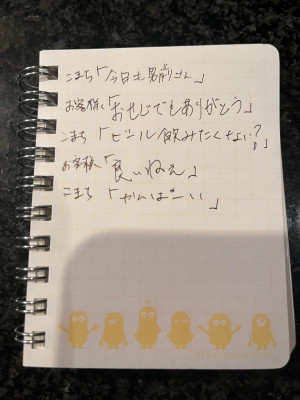 こまち「今日も男前さん」
お客様「おせじでもありがとう」
こまち「ビール飲みたくない?」
お客様「良いねぇ」
こまち「かんぱーい」